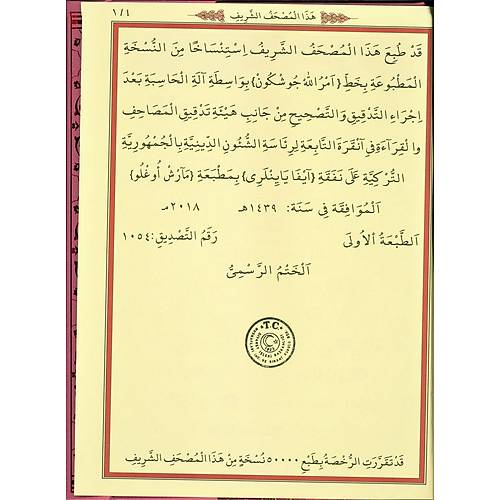 هَذَا الْمُصْحَفُ الشَّرِيفِ
١/٤
قَدْ طُبِعَ هَذَا الْمُصْحَفُ الشَّرِيفُ اِسْتِنْسَاخًا مِنَ النُّسْخَةِ
الْمَطْبُوعَةِ بِخَطِّ {اَمْرُ اللهُ جُوشْكُونْ} بِوَاسِطَةِ آلَةِ الْحَاسِبَةِ بَعْدَ
اِجْرَاءِ التَّدْقِيقِ وَالتَّصْحِيحِ مِنْ جَانِبِ هَيْئَةِ تَدْقِيقِ الْمَصَاحِفِ
وَالْقِرَاءَةِ فِي اَنْقَرَةَ التَّابِعَةِ لِرِئَاسَةِ الشُّئُونِ الدِّينِيَّةِ بِالْجُمْهُورِيَّةِ
التُّرْكِيَّةِ عَلَى نَفَقَةِ {آيْفَا يَايِينْلَرِى} بِمَطْبَعَةِ {مَآرْشْ أُوغْلُو}
اَلْمُوَافِقَةِ فِي سَنَةِ: ١٤٣٩هـ ٢٠١٨مـ
اَلطَّبْعَةُ الْاُولَى رَقَمُ التَّصْدِيقِ: ١٠٥٤
اَلْخَتْمُ الرَّسْمِيُّ
T.C.
قَدْ تَقَرَّرَتِ الرُّخْصَةُ بِطَبْعِ ٥٠٠٠٠ نُسْخَةٍ مِنْ هَذَا الْمُصْحَفِ الشَّرِيفِ